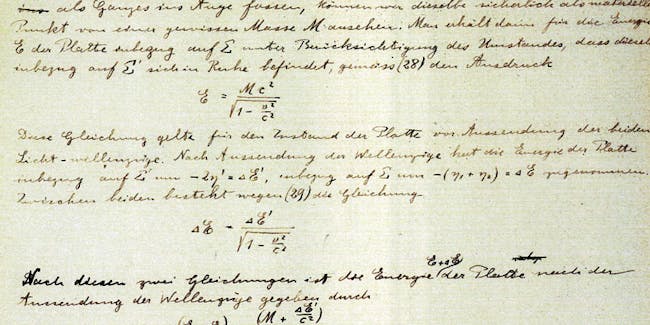 als Ganzes ins Auge fassen, können wir dieselbe sicherlich als materiellen
Punkt von einer gewissen Masse M ansehen. Man erhält dann für die Energie
E der Platte inbezug auf Σ unter Berücksichtigung des Umstandes, dass dieselbe
inbezug auf Σ' sich in Ruhe befindet, gemäss (28) den Ausdruck
E = M c² / √(1 - v²/c²)
Diese Gleichung gelte für den Zustand der Platte vor Aussendung der beiden
Licht-wellenzüge. Nach Aussendung der Wellenzüge hat die Energie der Platte
inbezug auf Σ' um -2η' = ΔE', inbezug auf Σ um -(η₁ + η₂) = ΔE zugenommen.
Zwischen beiden besteht wegen (29) die Gleichung
ΔE = ΔE' / √(1 - v²/c²)
Nach diesen zwei Gleichungen ist die Energie E+ΔE der Platte nach der
Aussendung der Wellenzüge gegeben durch
(M + ΔE'/c²)